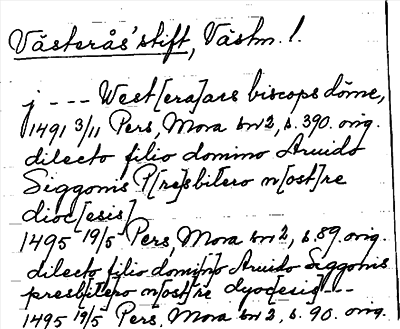 Västerås' stift, Västm. l.
j --- West[era]ars biscops döme,
1491 3/11 Pers, Mora bn 2, s. 390. orig.
dilecto filio domino Aruido
Siggonis P[res]bitero n[ost]re
dioc[esis]
1495 19/5 Pers, Mora bn 2, s. 89. orig.
dilecto filio domino Aruido Siggonis
presbitero n[ost]re dyoc[esis] ---
1495 19/5 Pers, Mora bn 2, s. 90. orig.